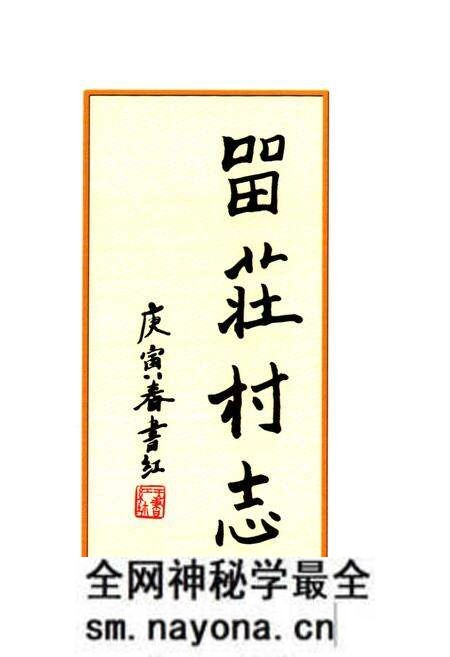 㽞莊村志
庚寅春書红
全网神秘学最全
sm.nayona.cn